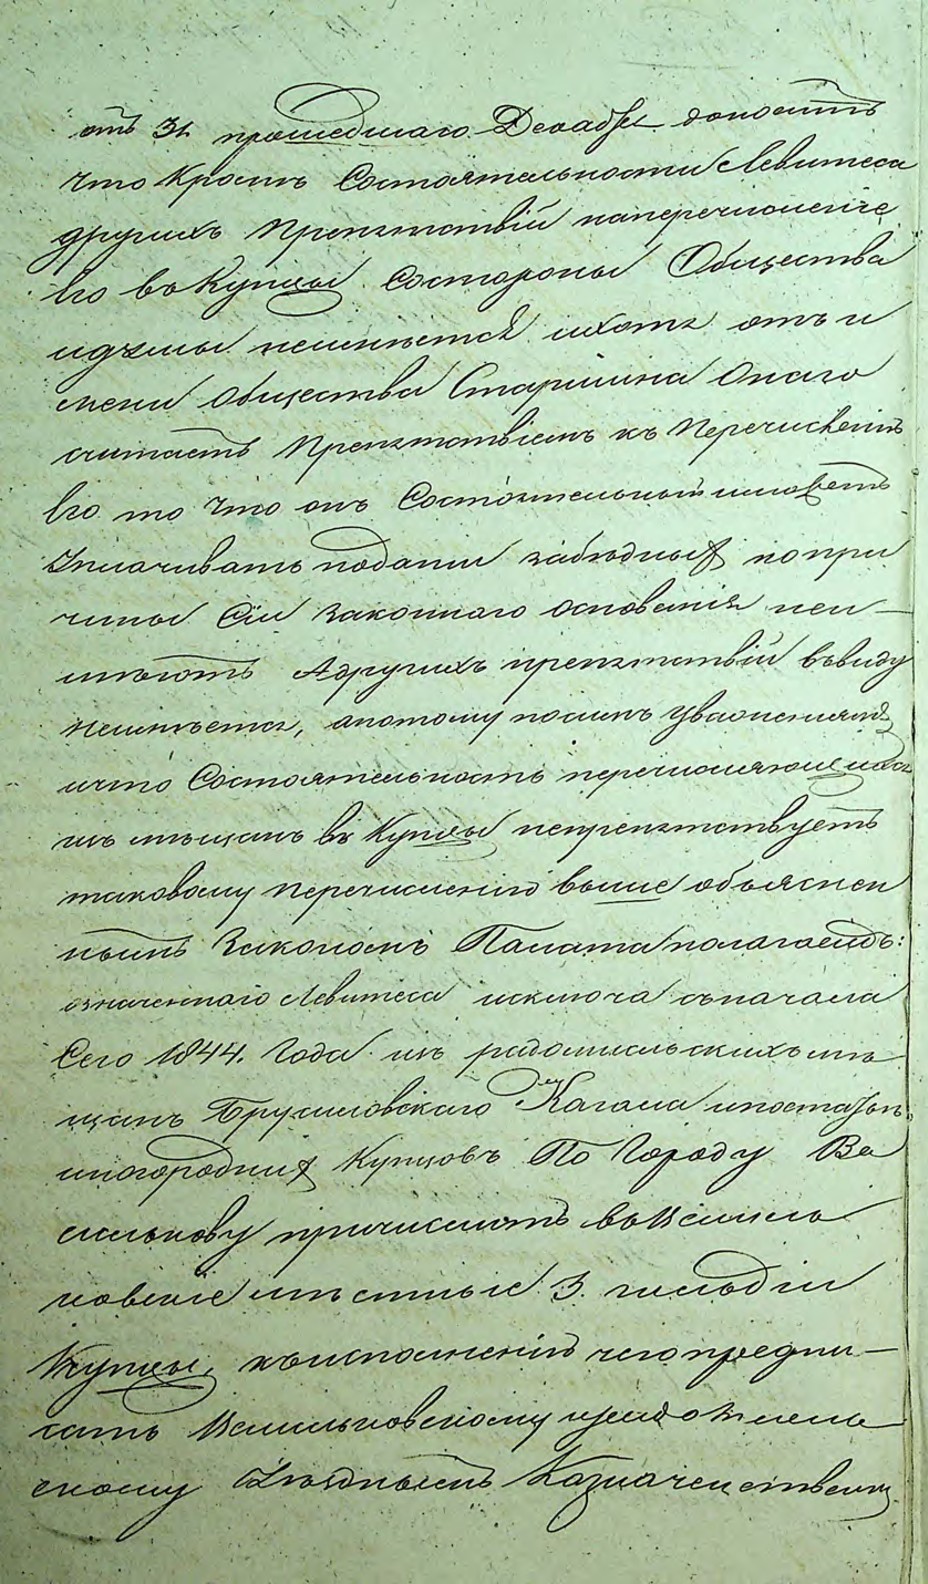 отъ 31 прошедшаго Декабря доноситъ
что Кромѣ Состоятельности Левитеса
другихъ Препятствій наперечисленіе
Его въ Купцы Состороны Общества
идумы неимѣется ихотя отъ и
мени Общества Старшина Онаго
считаетъ Препятствіемъ къ Перечисленію
Его то что онъ Состоятельный иможетъ
Уплачивать подати забѣдныхъ но при
чины Сіи Законнаго основанія неи-
мѣютъ Адругихъ препятствій въвиду
Неимѣется, апотому посимъ Уваженіямъ
ичто Состоятельность перечисляющихся
изъ мѣщанъ въ Купцы непрепятствуетъ
таковому перечисленію выше объяснен
нымъ Закономъ Палата полагаетъ:
означеннаго Левитеса исключа съначала
Сего 1844. Года изъ радомисльскихъ мѣ
щанъ Брусиловскаго Кагала
иногороднихъ Купцовъ По Городу Ва
силькову причислить въ Василь
ковскіе мѣстные 3. гильдіи
Купцы, къисполненію чего предпи-
сать Васильковскому и Радомысль
скому Уѣзднымъ Казначействамъ